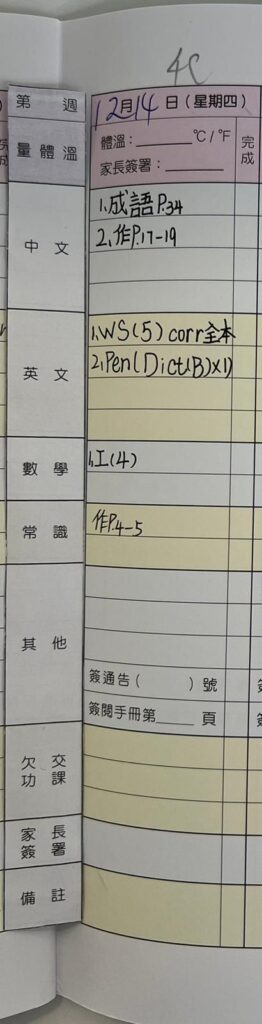 4C
第 週 12月14日(星期四)
量體溫 體溫：______°C/°F 完成
家長簽署：______
中文 1.成語P.34
2.作P.17-19
英文 1.WS(5) corr全本
2.Pen(Dict(B)×1)
數學 1.工(4)
常識 作P.4-5
其他
簽通告( )號
簽閱手冊第____頁
欠交功課
家長簽署
備註